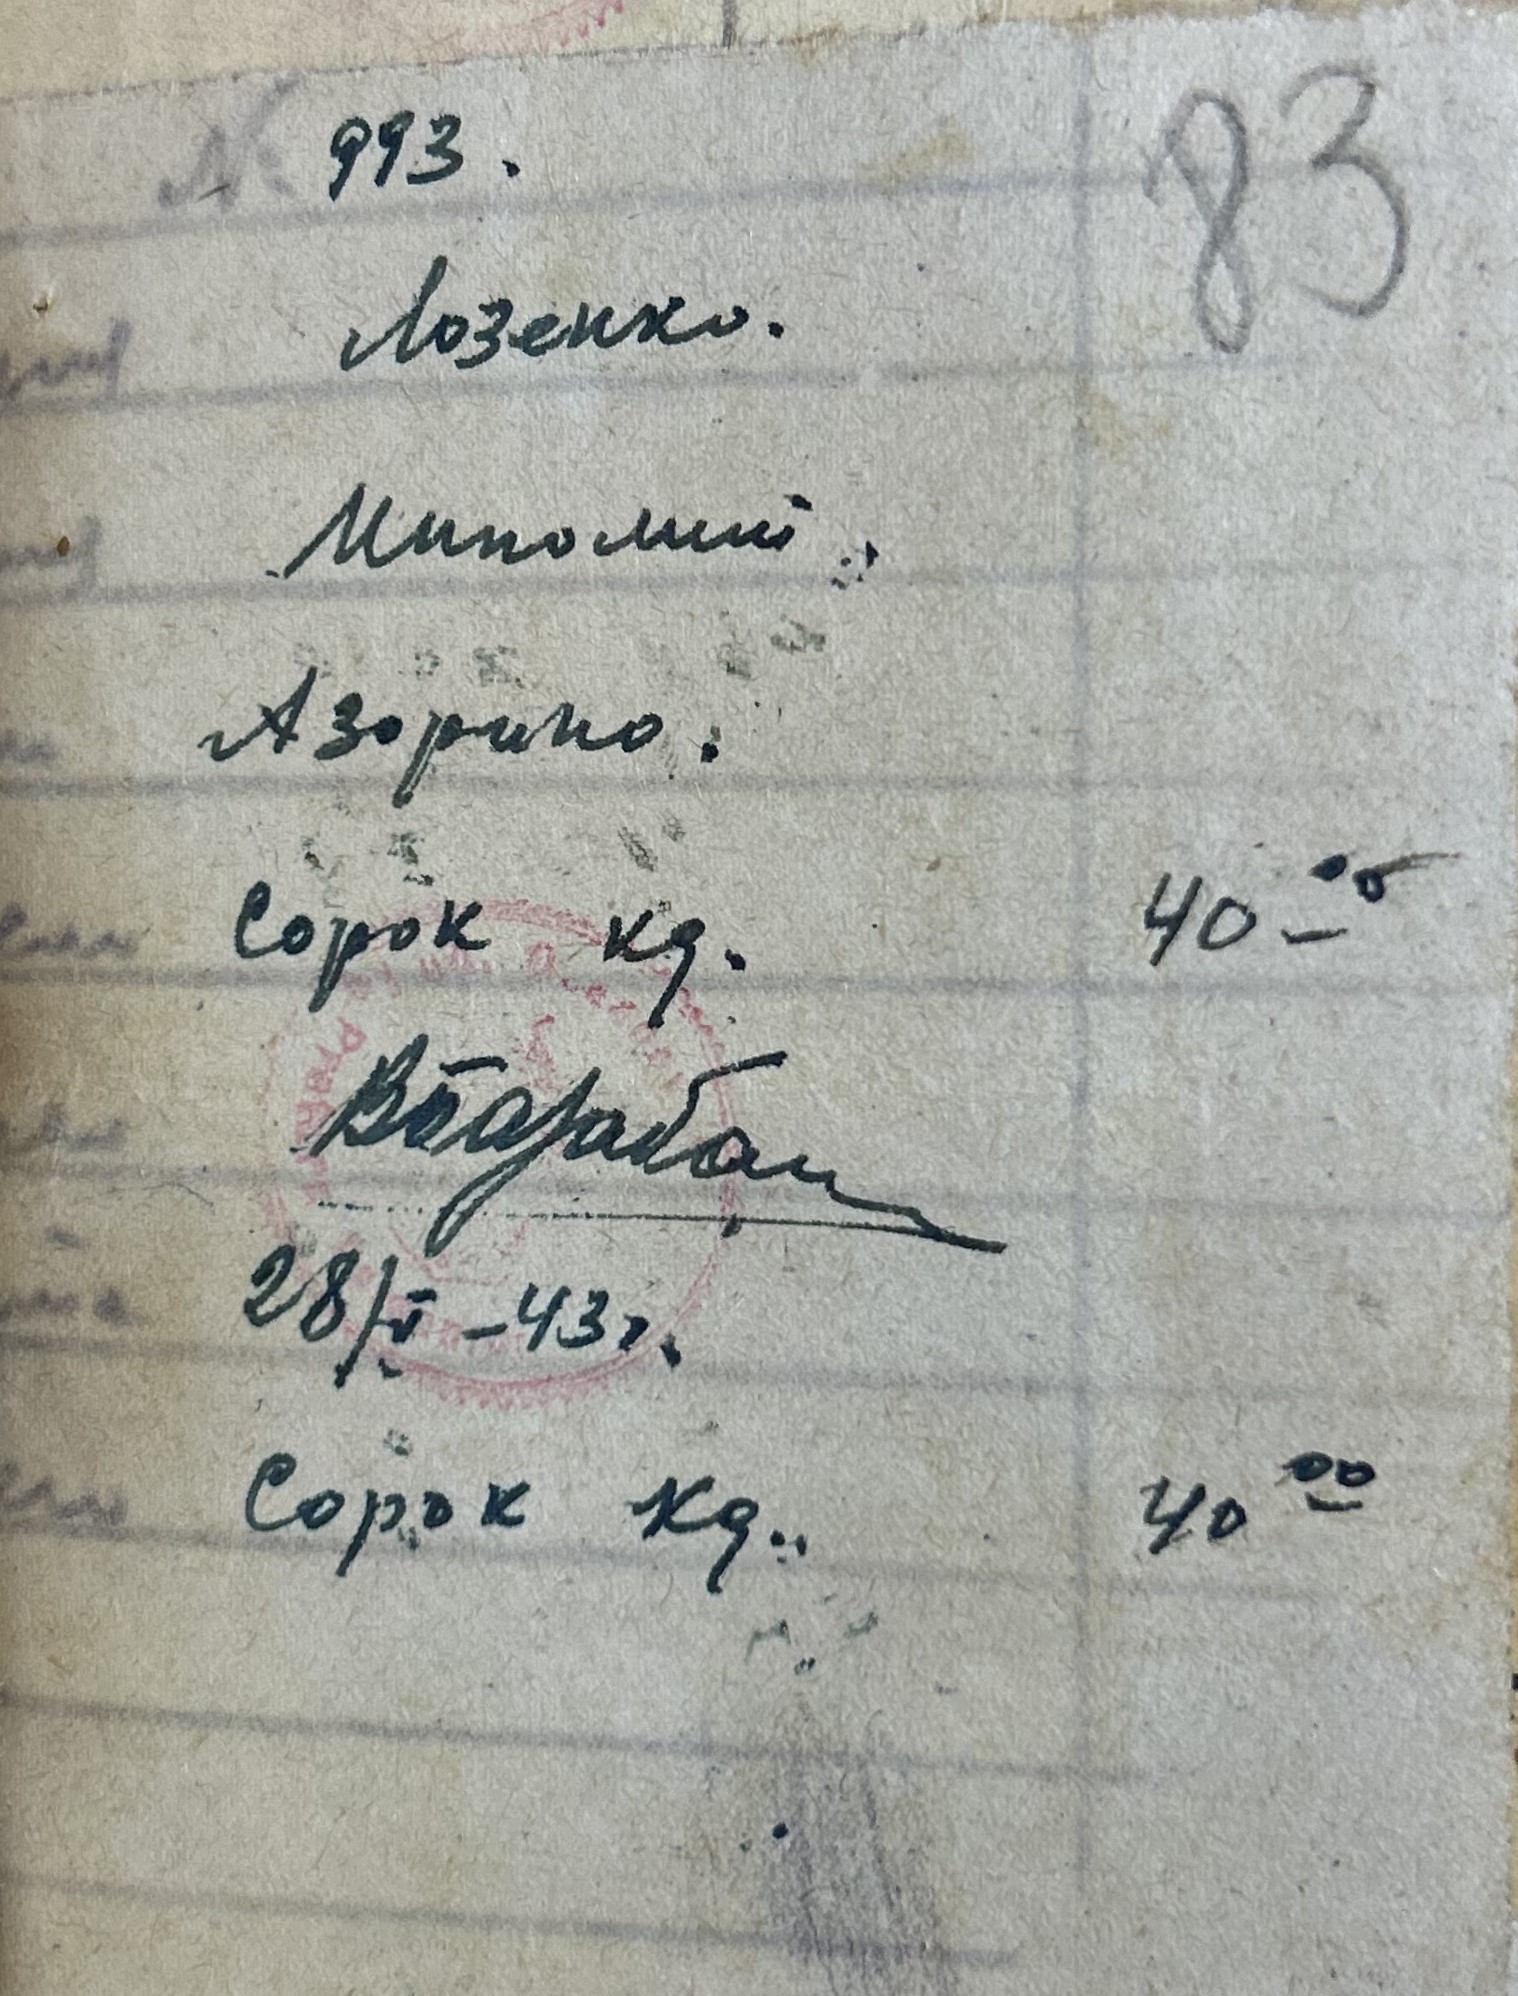 83
№ 993.
Лозенко.
Иполит.
Азорино.
Сорок кг. 40-00
28/V-43г.
Сорок кг. 40 00